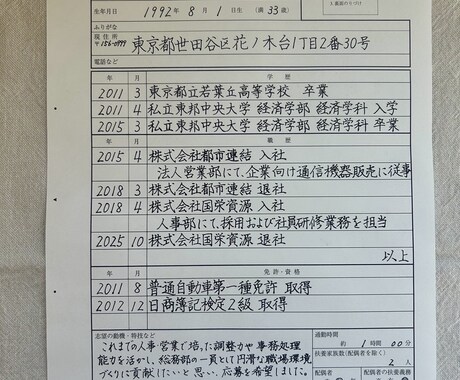 生年月日 1992年 8月 1日生 (満 33歳)
ふりがな
現住所
〒156-0999
東京都世田谷区花ノ木台1丁目2番30号
電話など
年 月 学歴
2011 3 東京都立若葉丘高等学校 卒業
2011 4 私立東邦中央大学 経済学部 経済学科 入学
2015 3 私立東邦中央大学 経済学部 経済学科 卒業
年 月 職歴
2015 4 株式会社都市連結 入社
法人営業部にて、企業向け通信機器販売に従事
2018 3 株式会社都市連結 退社
2018 4 株式会社国栄資源 入社
人事部にて、採用および社員研修業務を担当
2025 10 株式会社国栄資源 退社
以上
年 月 免許・資格
2011 8 普通自動車第一種免許 取得
2012 12 日商簿記検定2級 取得
志望の動機・特技など
これまでの人事・営業で培った調整力や事務処理
能力を活かし、総務部の一員として円滑な職場環境
づくりに貢献したいと思い、応募を希望しました。
通勤時間
約 1時間 00分
扶養家族数(配偶者を除く)
2人
配偶者 配偶者の扶養義務